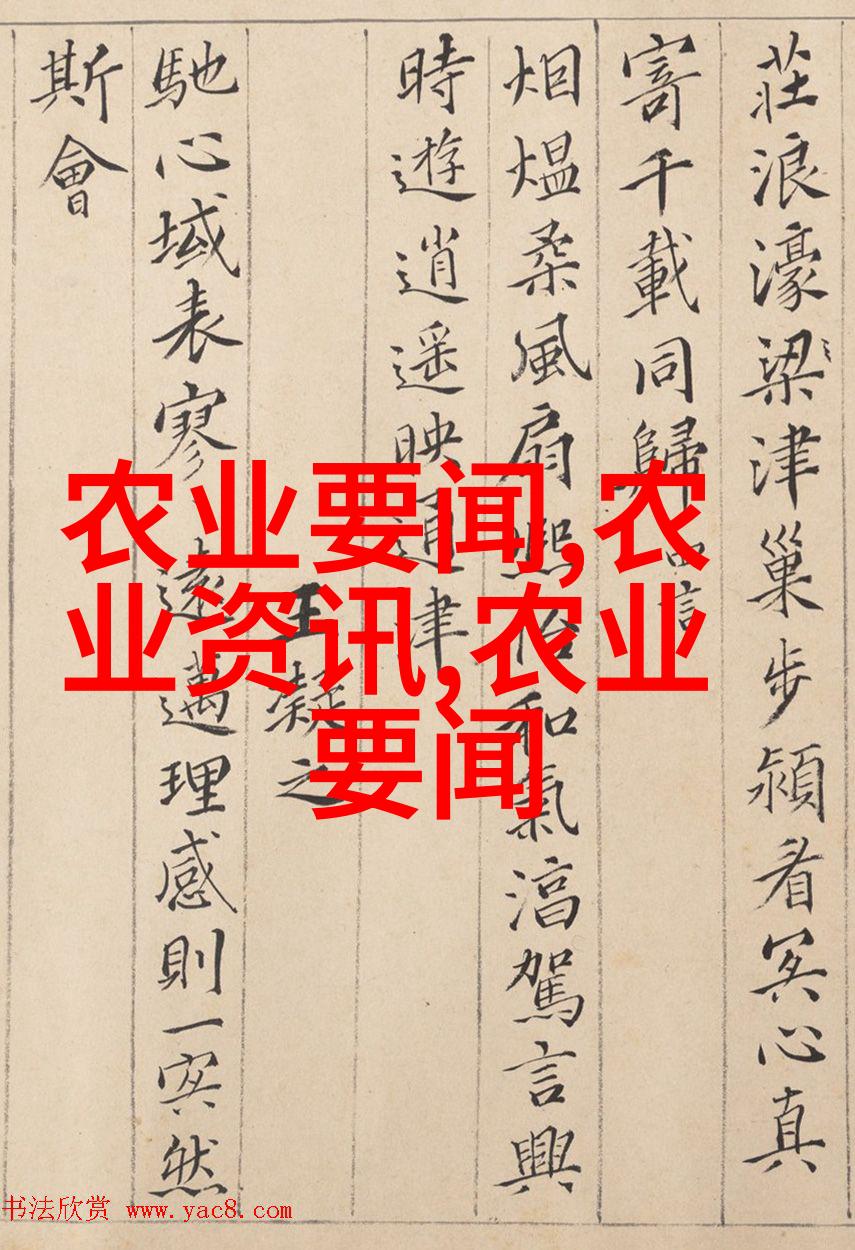 莊浪濠梁津巢步潁看冥心真
寄千載同歸 四言
烟熅柔風扇熙怡和氣淳駕言興
時遊逍遥映通津
王凝之
馳心域表寥遠邁理感則一冥然
斯會
农业要闻,农
业资讯,农业
要闻
书法欣赏 www.yac8.com